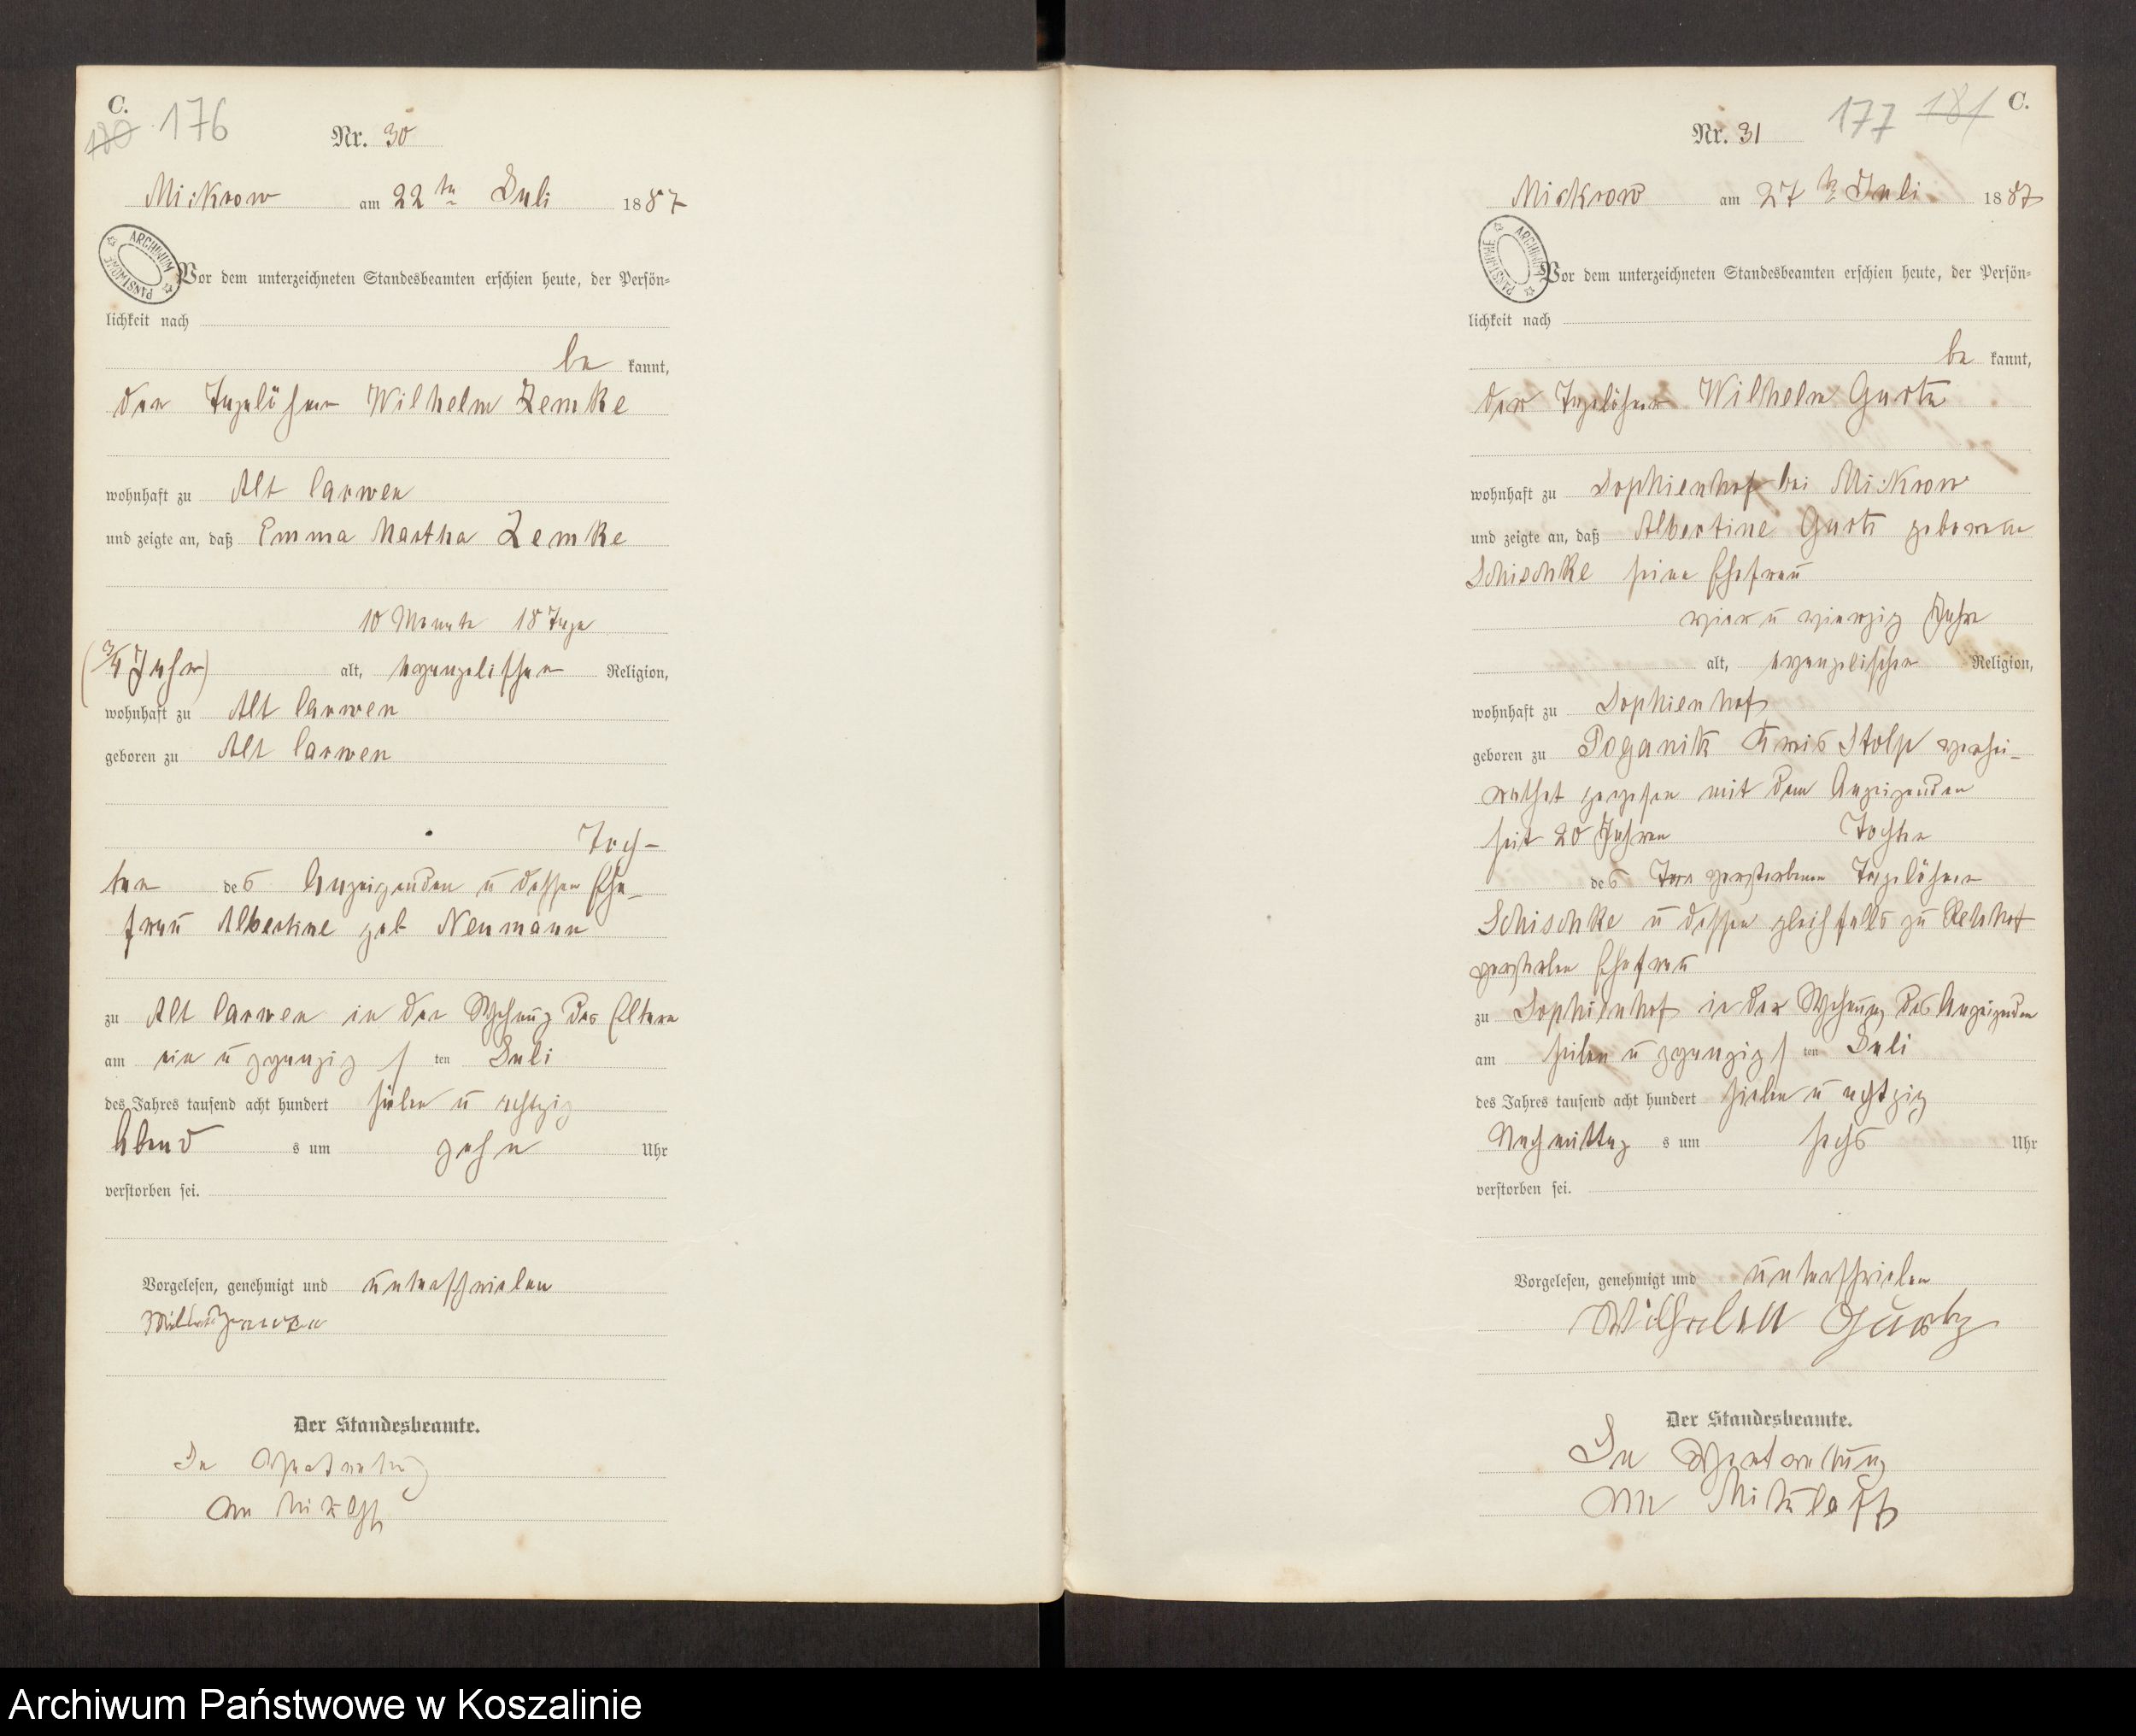 C.
180 176
Nr. 30
Mickrow am 22ten Juli 1887
ARCHIWUM PAŃSTWOWE
Vor dem unterzeichneten Standesbeamten erschien heute, der Persön-
lichkeit nach
be kannt,
der Tagelöhner Wilhelm Zemke
wohnhaft zu Alt Carwen
und zeigte an, daß Emma Martha Zemke
10 Monate 18 Tage
(3/4 Jahr) alt, evangelischer Religion,
wohnhaft zu Alt Carwen
geboren zu Alt Carwen
Toch-
ter des Anzeigenden u dessen Ehe-
frau Albertine geb Neumann
zu Alt Carwen in der Wohnung der Eltern
am ein u zwanzig ten Juli
des Jahres tausend acht hundert sieben u achtzig
Abend s um zehn Uhr
verstorben sei.
Vorgelesen, genehmigt und unterschrieben
Der Standesbeamte.
In Vertretung
177 181 C.
Nr. 31
Mickrow am 27ten Juli 1887
ARCHIWUM PAŃSTWOWE
Vor dem unterzeichneten Standesbeamten erschien heute, der Persön-
lichkeit nach
be kannt,
der Tagelöhner Wilhelm Gartz
wohnhaft zu Sophienhof bei Mickrow
und zeigte an, daß Albertine Gartz geborene
Schischke seine Ehefrau
vier u vierzig Jahre
alt, evangelischer Religion,
wohnhaft zu Sophienhof
geboren zu Poganik Kreis Stolp verhei-
rathet gewesen mit dem Anzeigenden
seit 20 Jahren Tochter
des verstorbenen Tagelöhner
Schischke u dessen gleichfalls zu Rehhof
verstorben Ehefrau
zu Sophienhof in der Wohnung des Anzeigenden
am sieben u zwanzig ten Juli
des Jahres tausend acht hundert sieben u achtzig
Nachmittag s um sechs Uhr
verstorben sei.
Vorgelesen, genehmigt und unterschrieben
Wilhelm Gartz
Der Standesbeamte.
In Vertretung
Archiwum Państwowe w Koszalinie